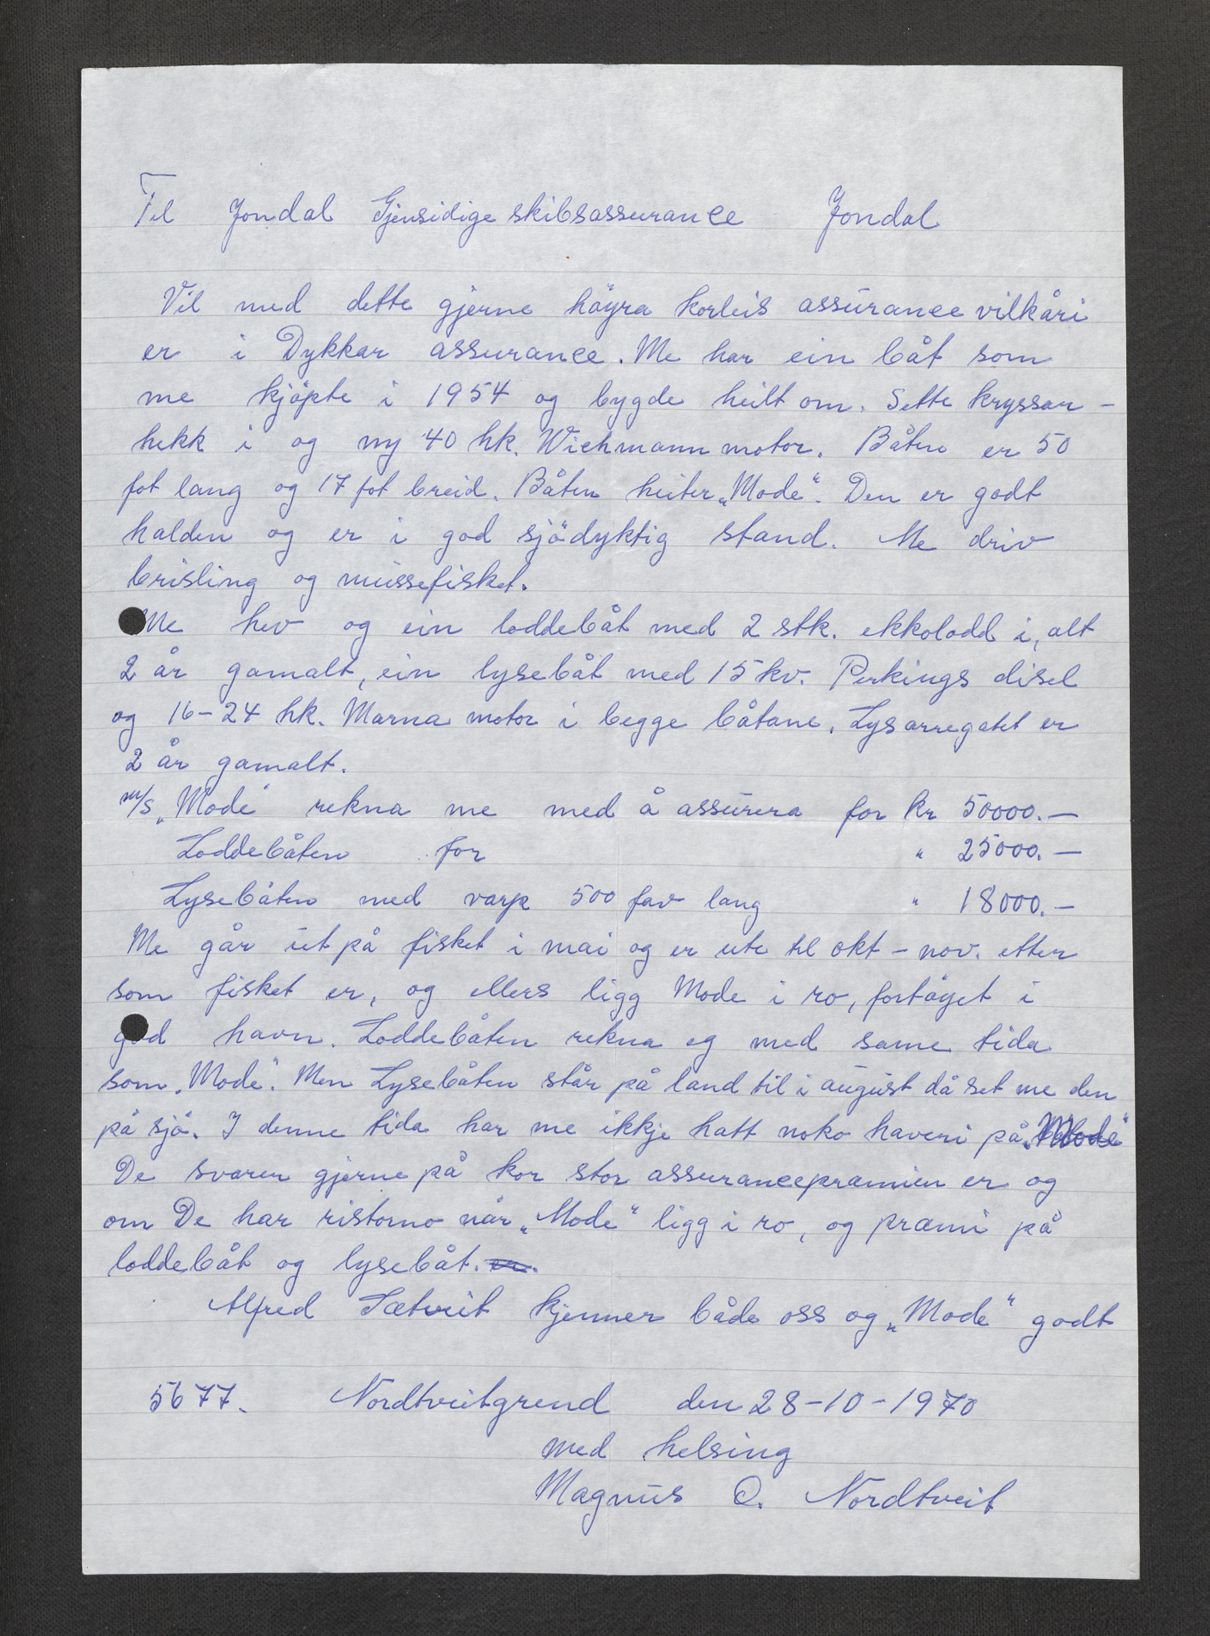 Til Jondal Gjensidige skibsassurance Jondal
Vil med dette gjerne höyra korleis assurance vilkåri
er i Dykkar assurance. Me har ein båt som
me kjöpte i 1954 og bygde heilt om. Sette kryssar-
hekk i og ny 40 hk. Wichmann motor. Båten er 50
fot lang og 17 fot breid. Båten heiter „Mode“. Den er godt
halden og er i god sjödyktig stand. Me driv
brisling og mussefisket.
Me hev og ein loddebåt med 2 stk. ekkolodd i, alt
2 år gamalt, ein lysebåt med 15 kv. Perkings disel
og 16-24 hk. Marna motor i begge båtane. Lysarregatet er
2 år gamalt.
m/s „Mode“ rekna me med å assurera for kr 50000.—
Loddebåten for " 25000.—
Lysebåten med varp 500 fav lang " 18000.—
Me går ut på fisket i mai og er ute til okt - nov. etter
som fisket er, og ellers ligg Mode i ro, fortöyet i
god havn. Loddebåten rekna eg med same tida
som „Mode“. Men Lysebåten står på land til i august då set me den
på sjö. I denne tida har me ikkje hatt noko haveri på „Mode“
De svarer gjerne på kor stor assurancepræmien er og
om De har ristorno når „Mode“ ligg i ro, og præmi på
loddebåt og lysebåt.
Alfred Sætveit kjenner både oss og „Mode“ godt
5677. Nordtveitgrend den 28-10-1970
med helsing
Magnus O. Nordtveit